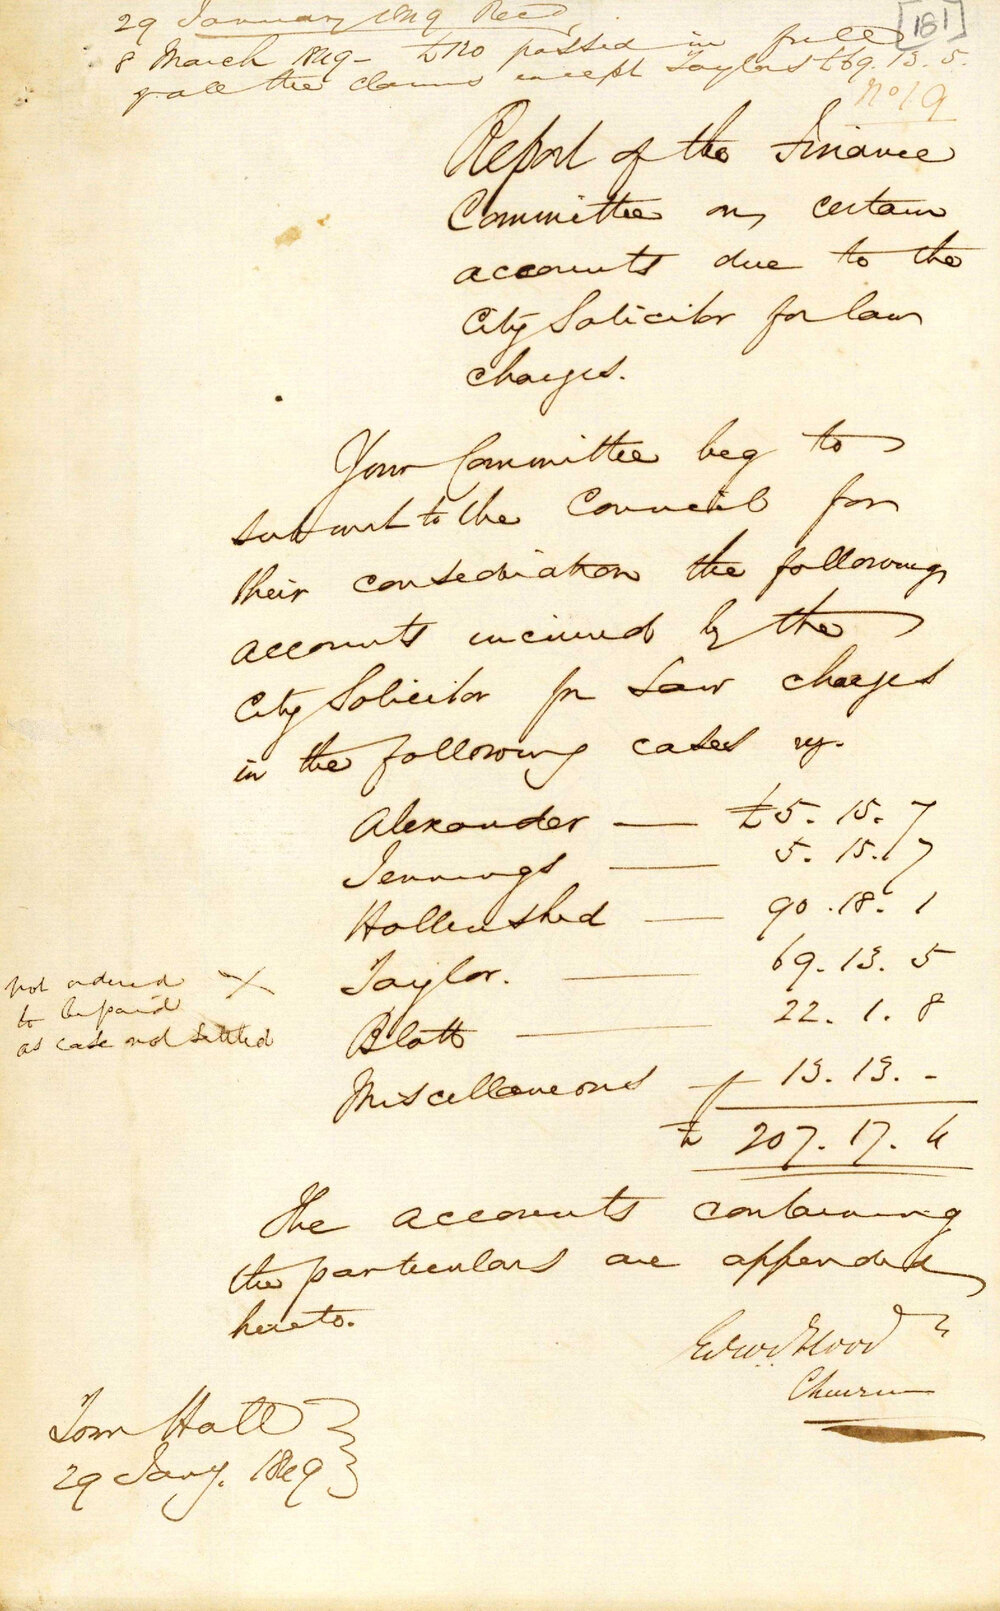 29 January 1849 Read,
8 March 1849 - £140 passed in full
of all the claims except Taylors £69. 13. 5.
[181]
No 19
Report of the Finance
Committee on certain
accounts due to the
City Solicitor for law
charges.
Your Committee beg to
submit to the Council for
their consideration the following
accounts incurred by the
City Solicitor for Law charges
in the following cases vz.
Alexander — £5. 15. 7
Jennings — 5. 15. 7
Hollinshed — 90. 18. 1
not ordered
to be paid
as case not settled
X Taylor. — 69. 13. 5
Blatt — 22. 1. 8
Miscellaneous — 13. 13. -
£ 207. 17. 4
The accounts containing
the particulars are appended
hereto.
Edwd. Flood
Chairman
Town Hall
29 Jany. 1849